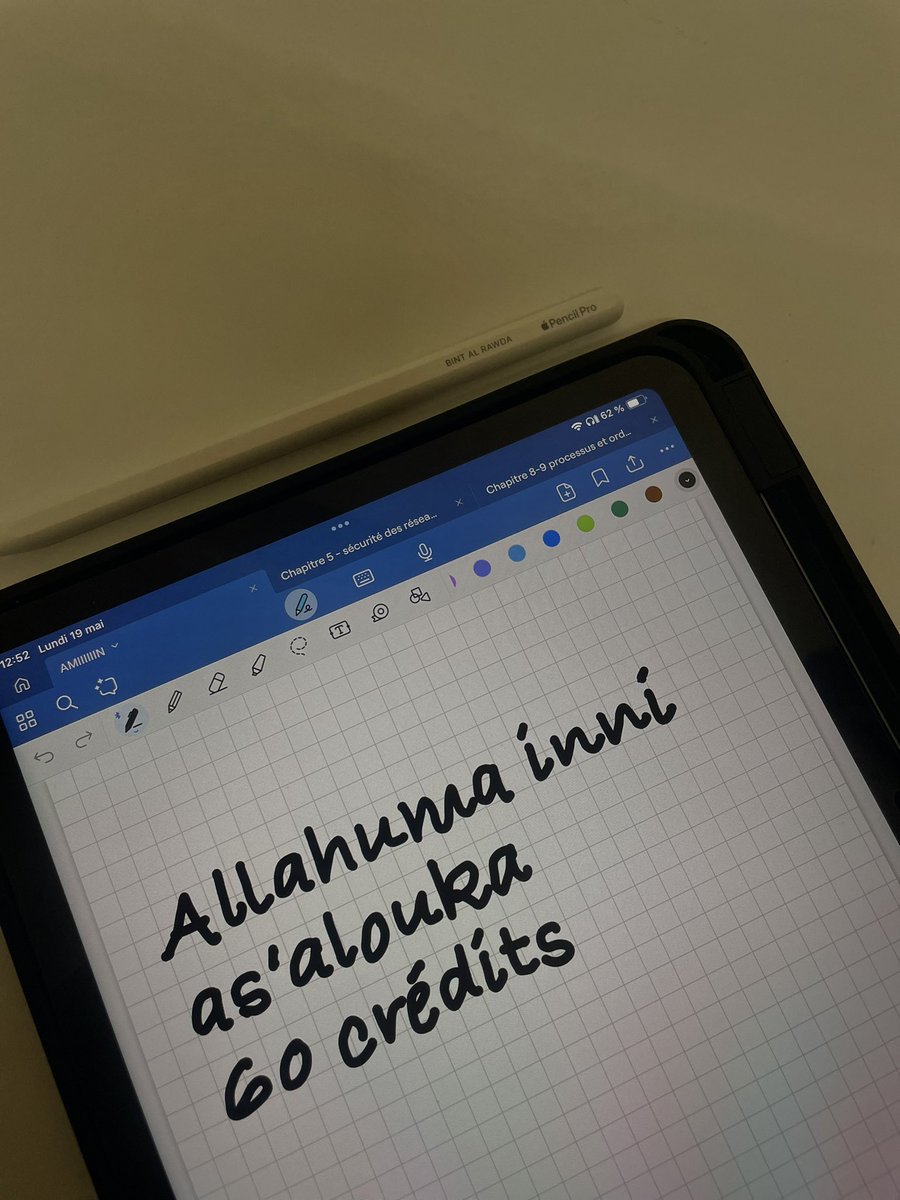 BINT AL RAWDA Pencil Pro
12:52 Lundi 19 mai 62 %
AMIIIIIN
Chapitre 5 - sécurité des résea...
Chapitre 8-9 processus et ord...
Allahuma inni
as'alouka
60 crédits